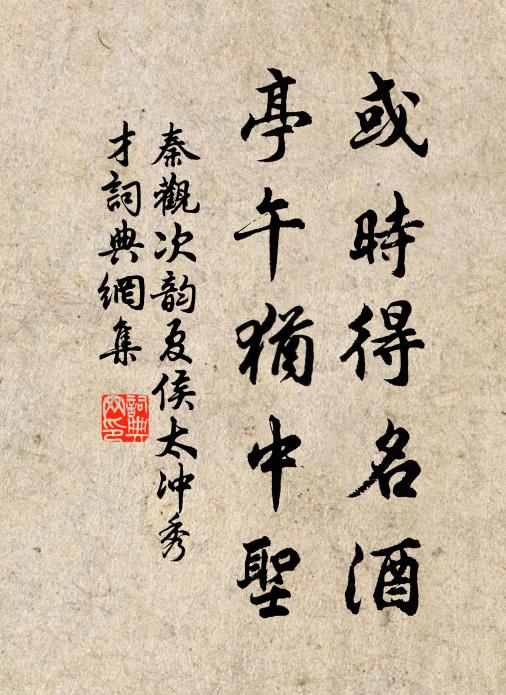 或時得名酒
亭午猶中聖
秦觀次韵夏侯太冲秀
才詞典網集
詞典网印